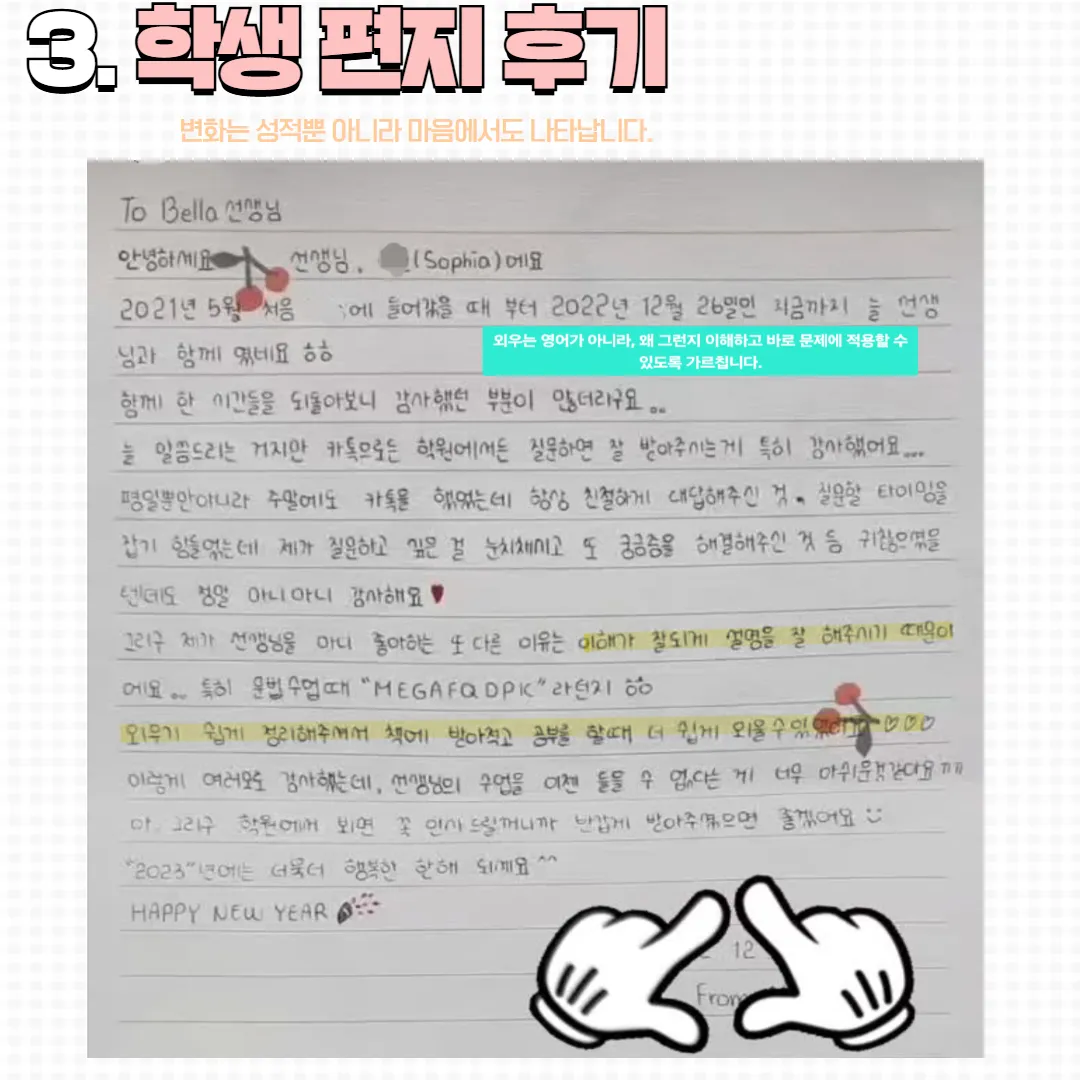 3. 학생 편지 후기
변화는 성적뿐 아니라 마음에서도 나타납니다.
To Bella 선생님
안녕하세요 선생님, (Sophia)에요
2021년 5월 처음 에 들어갔을 때 부터 2022년 12월 26일인 지금까지 늘 선생
님과 함께 했네요 ㅎㅎ
외우는 영어가 아니라, 왜 그런지 이해하고 바로 문제에 적용할 수
있도록 가르칩니다.
함께 한 시간들을 되돌아보니 감사했던 부분이 많더라구요..
늘 말씀드리는 거지만 카톡으로든 학원에서든 질문하면 잘 받아주시는게 특히 감사했어요...
평일뿐만아니라 주말에도 카톡을 했었는데 항상 친절하게 대답해주신 것, 질문할 타이밍을
잡기 힘들었는데 제가 질문하고 싶은 걸 눈치채시고 또 궁금증을 해결해주신 것 등 귀찮으셨을
텐데도 정말 아니아니 감사해요♥
그리구 제가 선생님을 마니 좋아하는 또 다른 이유는 이해가 잘되게 설명을 잘 해주시기 때문이
에요.. 특히 문법수업때 "MEGAFQDPIC"라던지 ㅎㅎ
외우기 쉽게 정리해주셔서 책에 받아적고 공부를 할때 더 쉽게 외울수있었어요 ♡♡♡
이렇게 여러모로 감사했는데, 선생님의 수업을 이젠 들을 수 없다는 게 너무 아쉬운것같아요ㅠㅠ
아. 그리구 학원에서 뵈면 꼭 인사드릴꺼니까 반갑게 받아주셨으면 좋겠어요 :)
"2023"년에는 더욱더 행복한 한해 되세요^^
HAPPY NEW YEAR
12
From